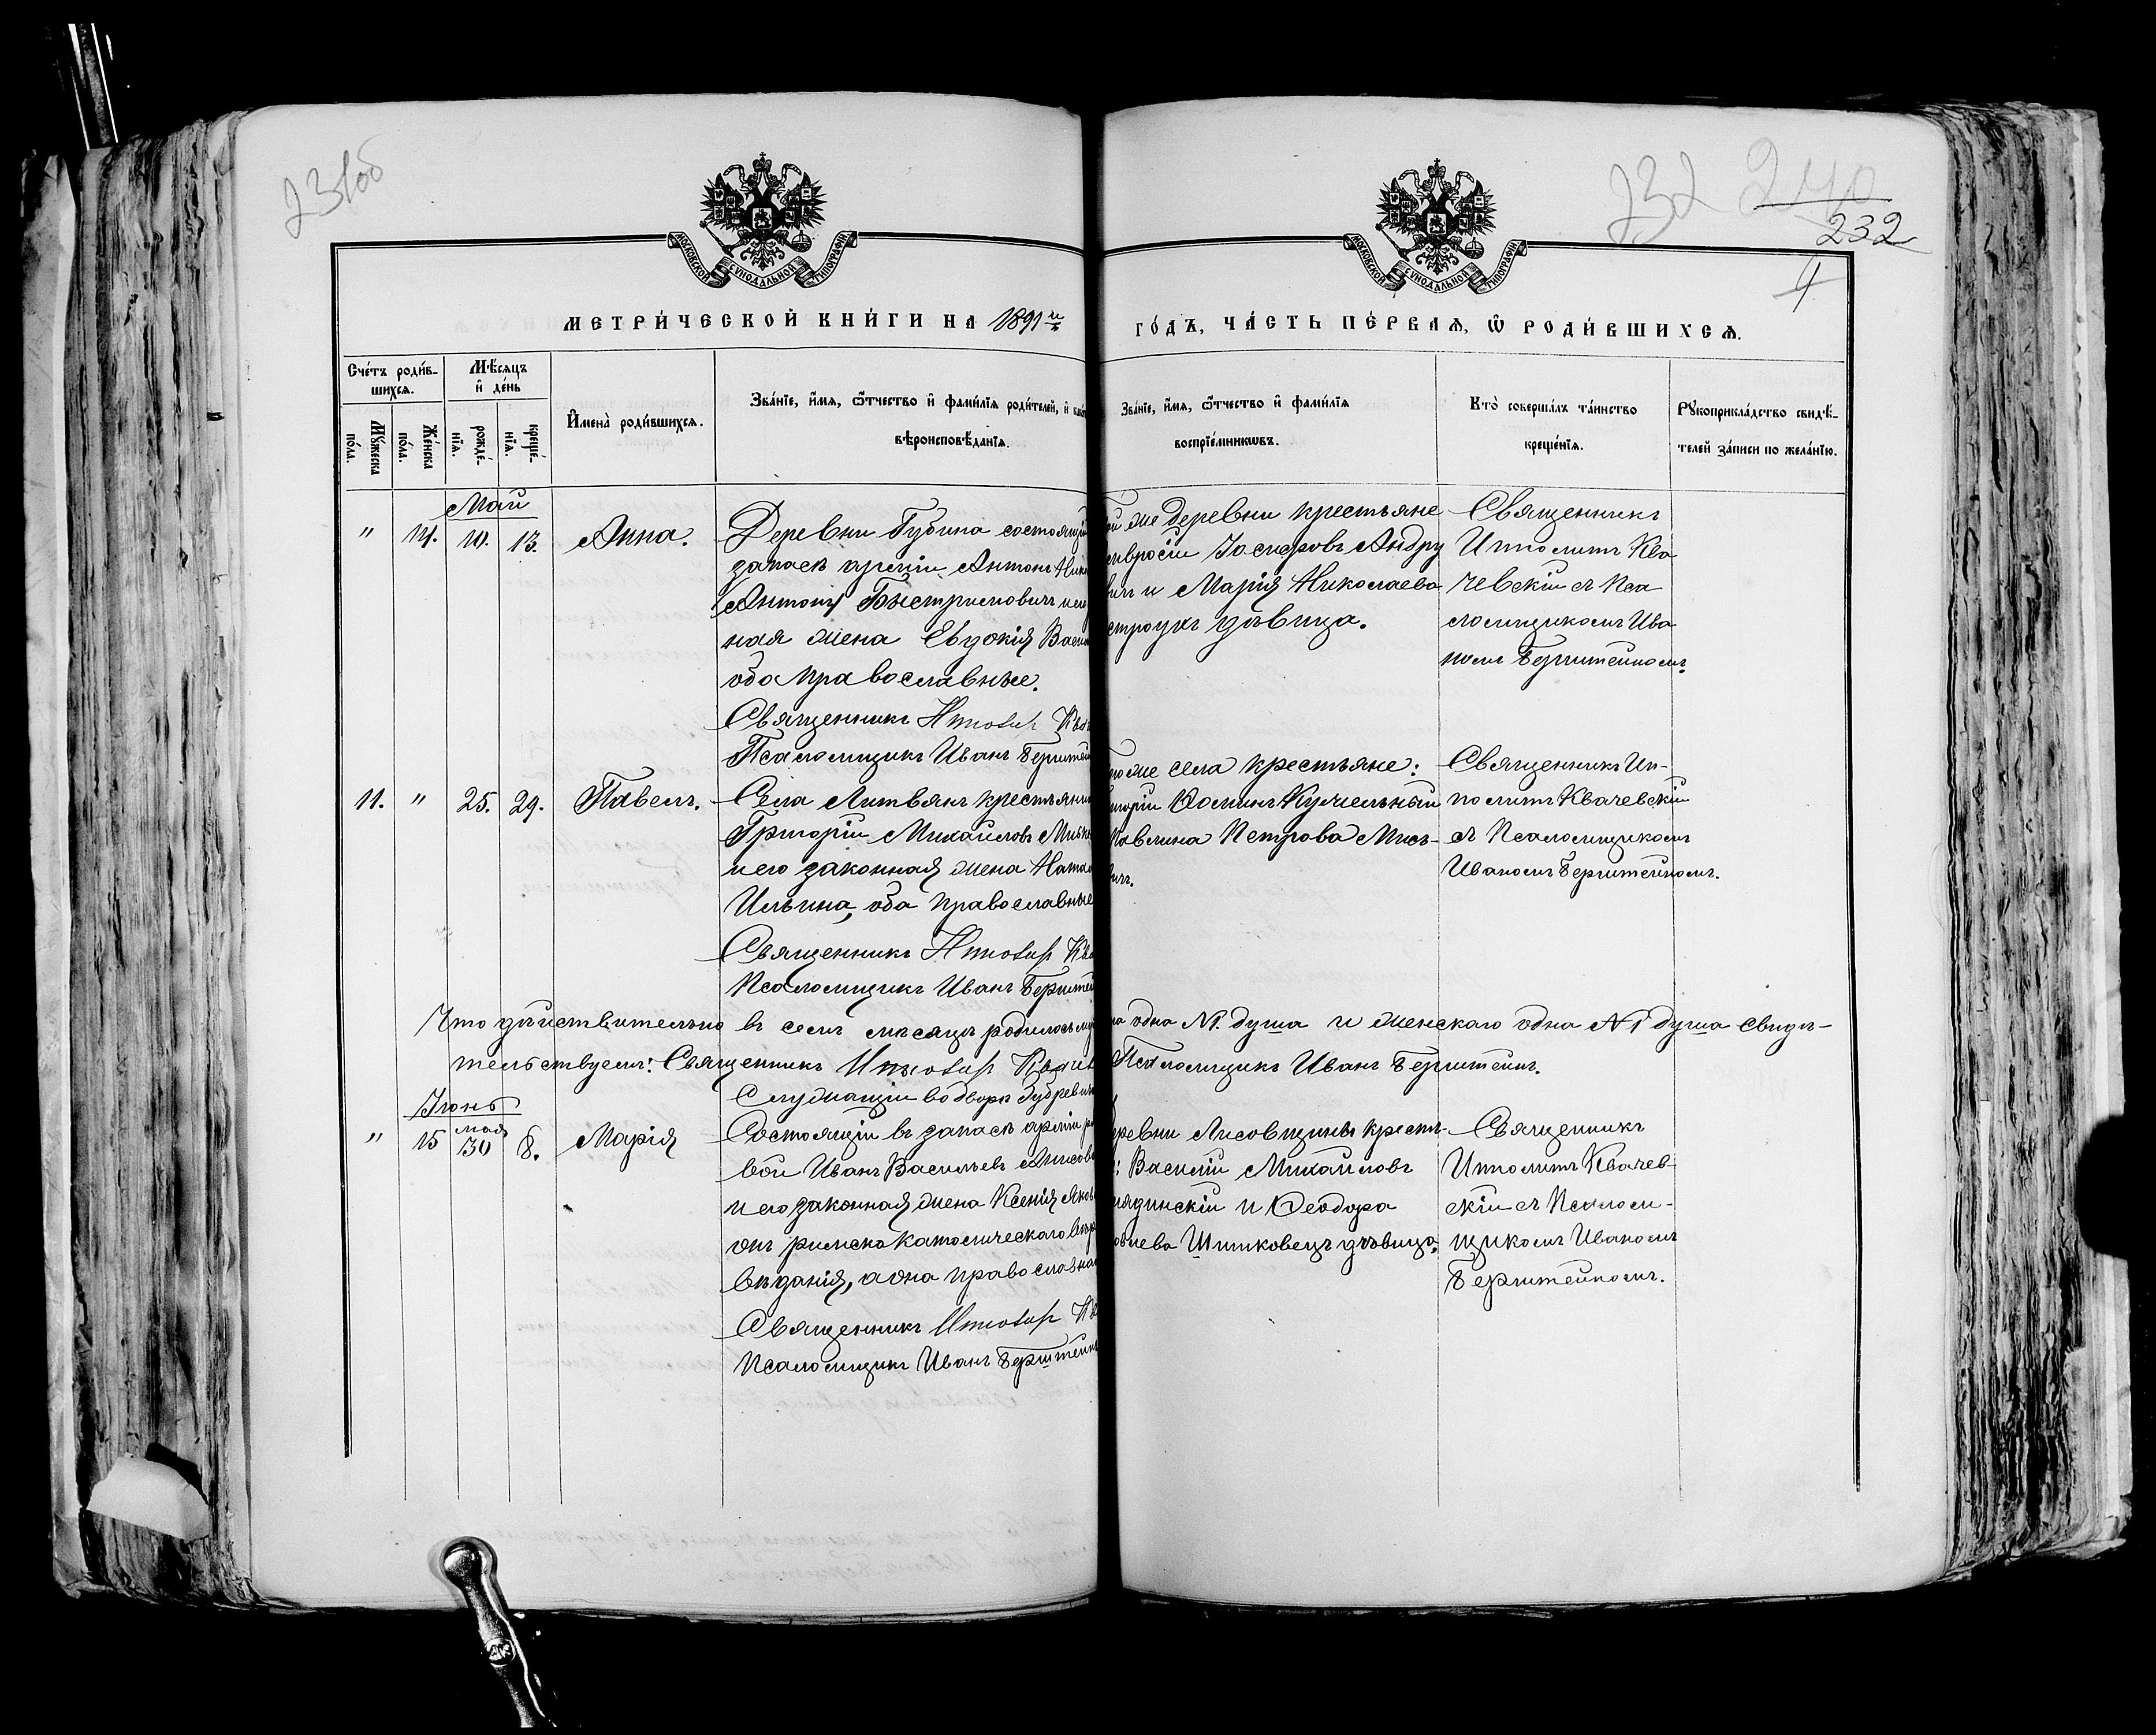 231об
232 240
232
4
МОСКОВСКОЙ СѴНОДАЛЬНОЙ ТИПОГРАФІИ
МОСКОВСКОЙ СѴНОДАЛЬНОЙ ТИПОГРАФІИ
МЕТРИ́ЧЕСКОЙ КНИ́ГИ НА 1891 й
ГО́ДЪ, ЧА́СТЬ ПЕ́РВАѦ, Ѡ҆ РОДИ́ВШИХСѦ.
Сче́тъ роди́в-
шихсѧ.
Мꙋ́жеска
по́ла.
Же́нска
по́ла.
Мѣ́сѧцъ
и҆ де́нь
рожде́-
нїѧ.
креще́-
нїѧ.
И҆мена̀ роди́вшихсѧ.
Зва́нїе, и҆́мѧ, ѻ҆́тчество и҆ фами́лїѧ роди́телей, и҆
вѣроисповѣ́данїѧ.
Зва́нїе, и҆́мѧ, ѻ҆́тчество и҆ фами́лїѧ
воспрїе́мникѡвъ.
Кто̀ соверша́лъ та́инство
креще́нїѧ.
Рꙋкоприкла́дство свидѣ́-
телей за́писи по жела́нїю.
Май
" 14. 10. 13. Анна.
Деревни Губина состоящій
запасѣ арміи Антонъ Ник
(Антонъ) Быстримовичъ и
ная жена Евдокія Васи
оба православные.
Священникъ Ипполитъ Ква
Псаломщикъ Иванъ Берштей
же деревни крестьяне
Іосифовъ Андру
и Марія Николаева
дѣвица.
Священникъ
Ипполитъ Ква
чевскій съ Пса
ломщикомъ Ива
номъ Берштейномъ.
11. " 25. 29. Павелъ.
Села Литвянъ крестьянин
Григорій Михайловъ
и его законная жена Ната
Ильина, оба православные
Священникъ Ипполитъ Ква
Псаломщикъ Иванъ Берштей
же села крестьяне:
Ѳоминъ Кумельный
Павлина Петрова Мись-
вичъ.
Священникъ Ип-
политъ Квачевскій
съ Псаломщикомъ
Иваномъ Берштейномъ.
Что дѣйствительно въ семъ мѣсяцѣ родилось муж
одна №1. душа и женскаго одна №1 душа свидѣ-
тельствуемъ: Священникъ Ипполитъ Квачев
Псаломщикъ Иванъ Берштейнъ.
Іюнь
" 15 мая 30 8. Марія
Служащій во дворѣ
Состоящій въ запасѣ арміи ря
вой Иванъ Васильевъ
и его законная жена Ксенія Яков
онъ римско католическаго вѣро
вѣданія, а она православна
Священникъ Ипполитъ Ква
Псаломщикъ Иванъ Берштейнъ
ревни Лисовщины кресть-
: Василій Михайловъ
и Ѳеодора
Шпиковецъ дѣвица.
Священникъ
Ипполитъ Квачев-
скій съ Псалом-
щикомъ Иваномъ
Берштейномъ.